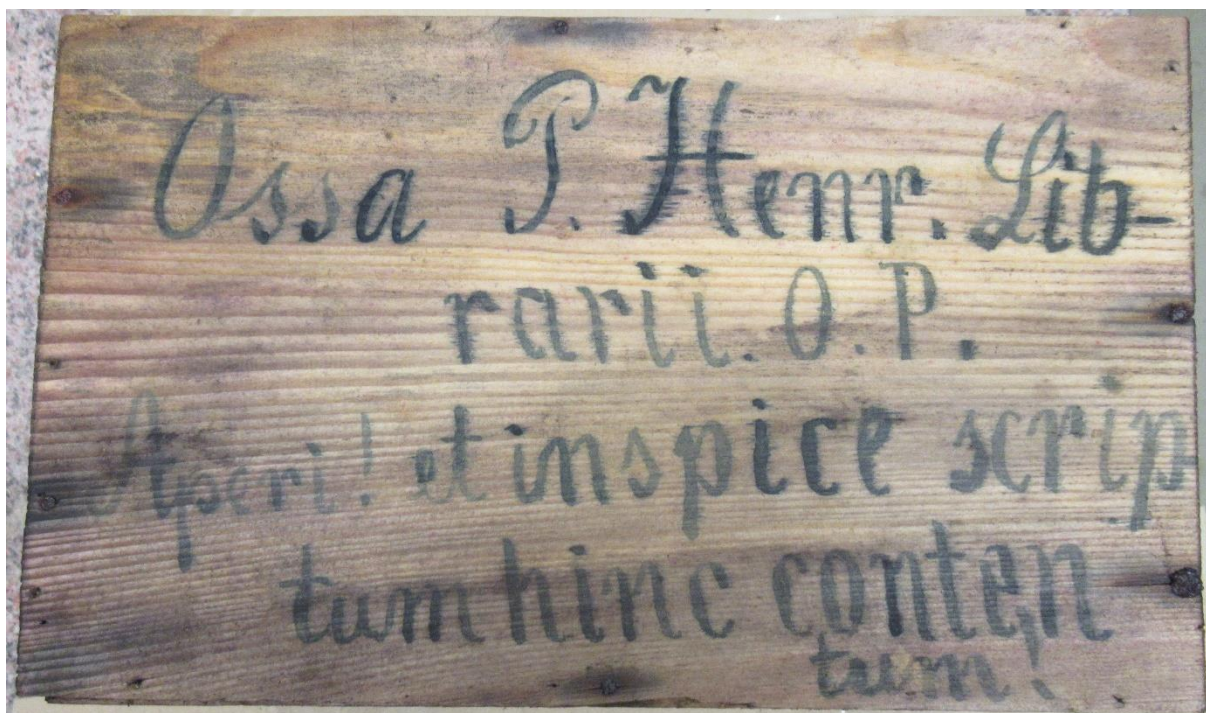 Ossa P. Henr. Lib-
rarii. O. P.
Aperi! et inspice scrip-
tum hinc conten
tum!